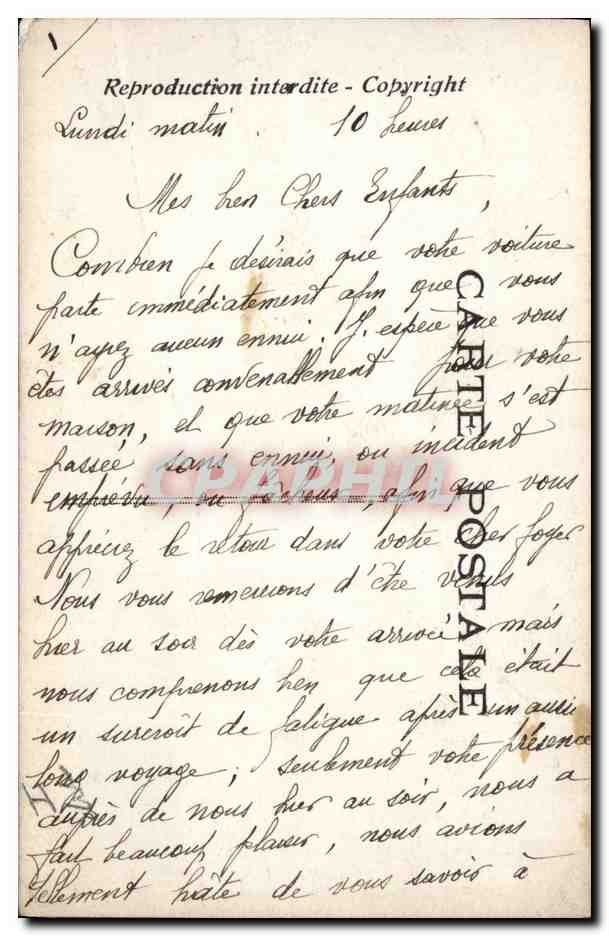 Reproduction interdite - Copyright
Lundi matin . 10 heures
Mes bien Chers Enfants,
Combien je désirais que votre voiture
parte immédiatement afin que vous
n'ayez aucun ennui. J'espère que vous
êtes arrivés convenablement pour votre
maison, et que votre matinée s'est
passée, sans ennui, ou incident
imprévu, ou fâcheux, afin que vous
appréciez le retour dans votre cher foyer
Nous vous remercions d'être venus
hier au soir dès votre arrivée, mais
nous comprenons bien que cela était
un surcroît de fatigue après un aussi
long voyage; seulement votre présence
auprès de nous hier au soir, nous a
fait beaucoup plaisir, nous avions
tellement hâte de vous savoir à
CARTE POSTALE
CPAPHIL